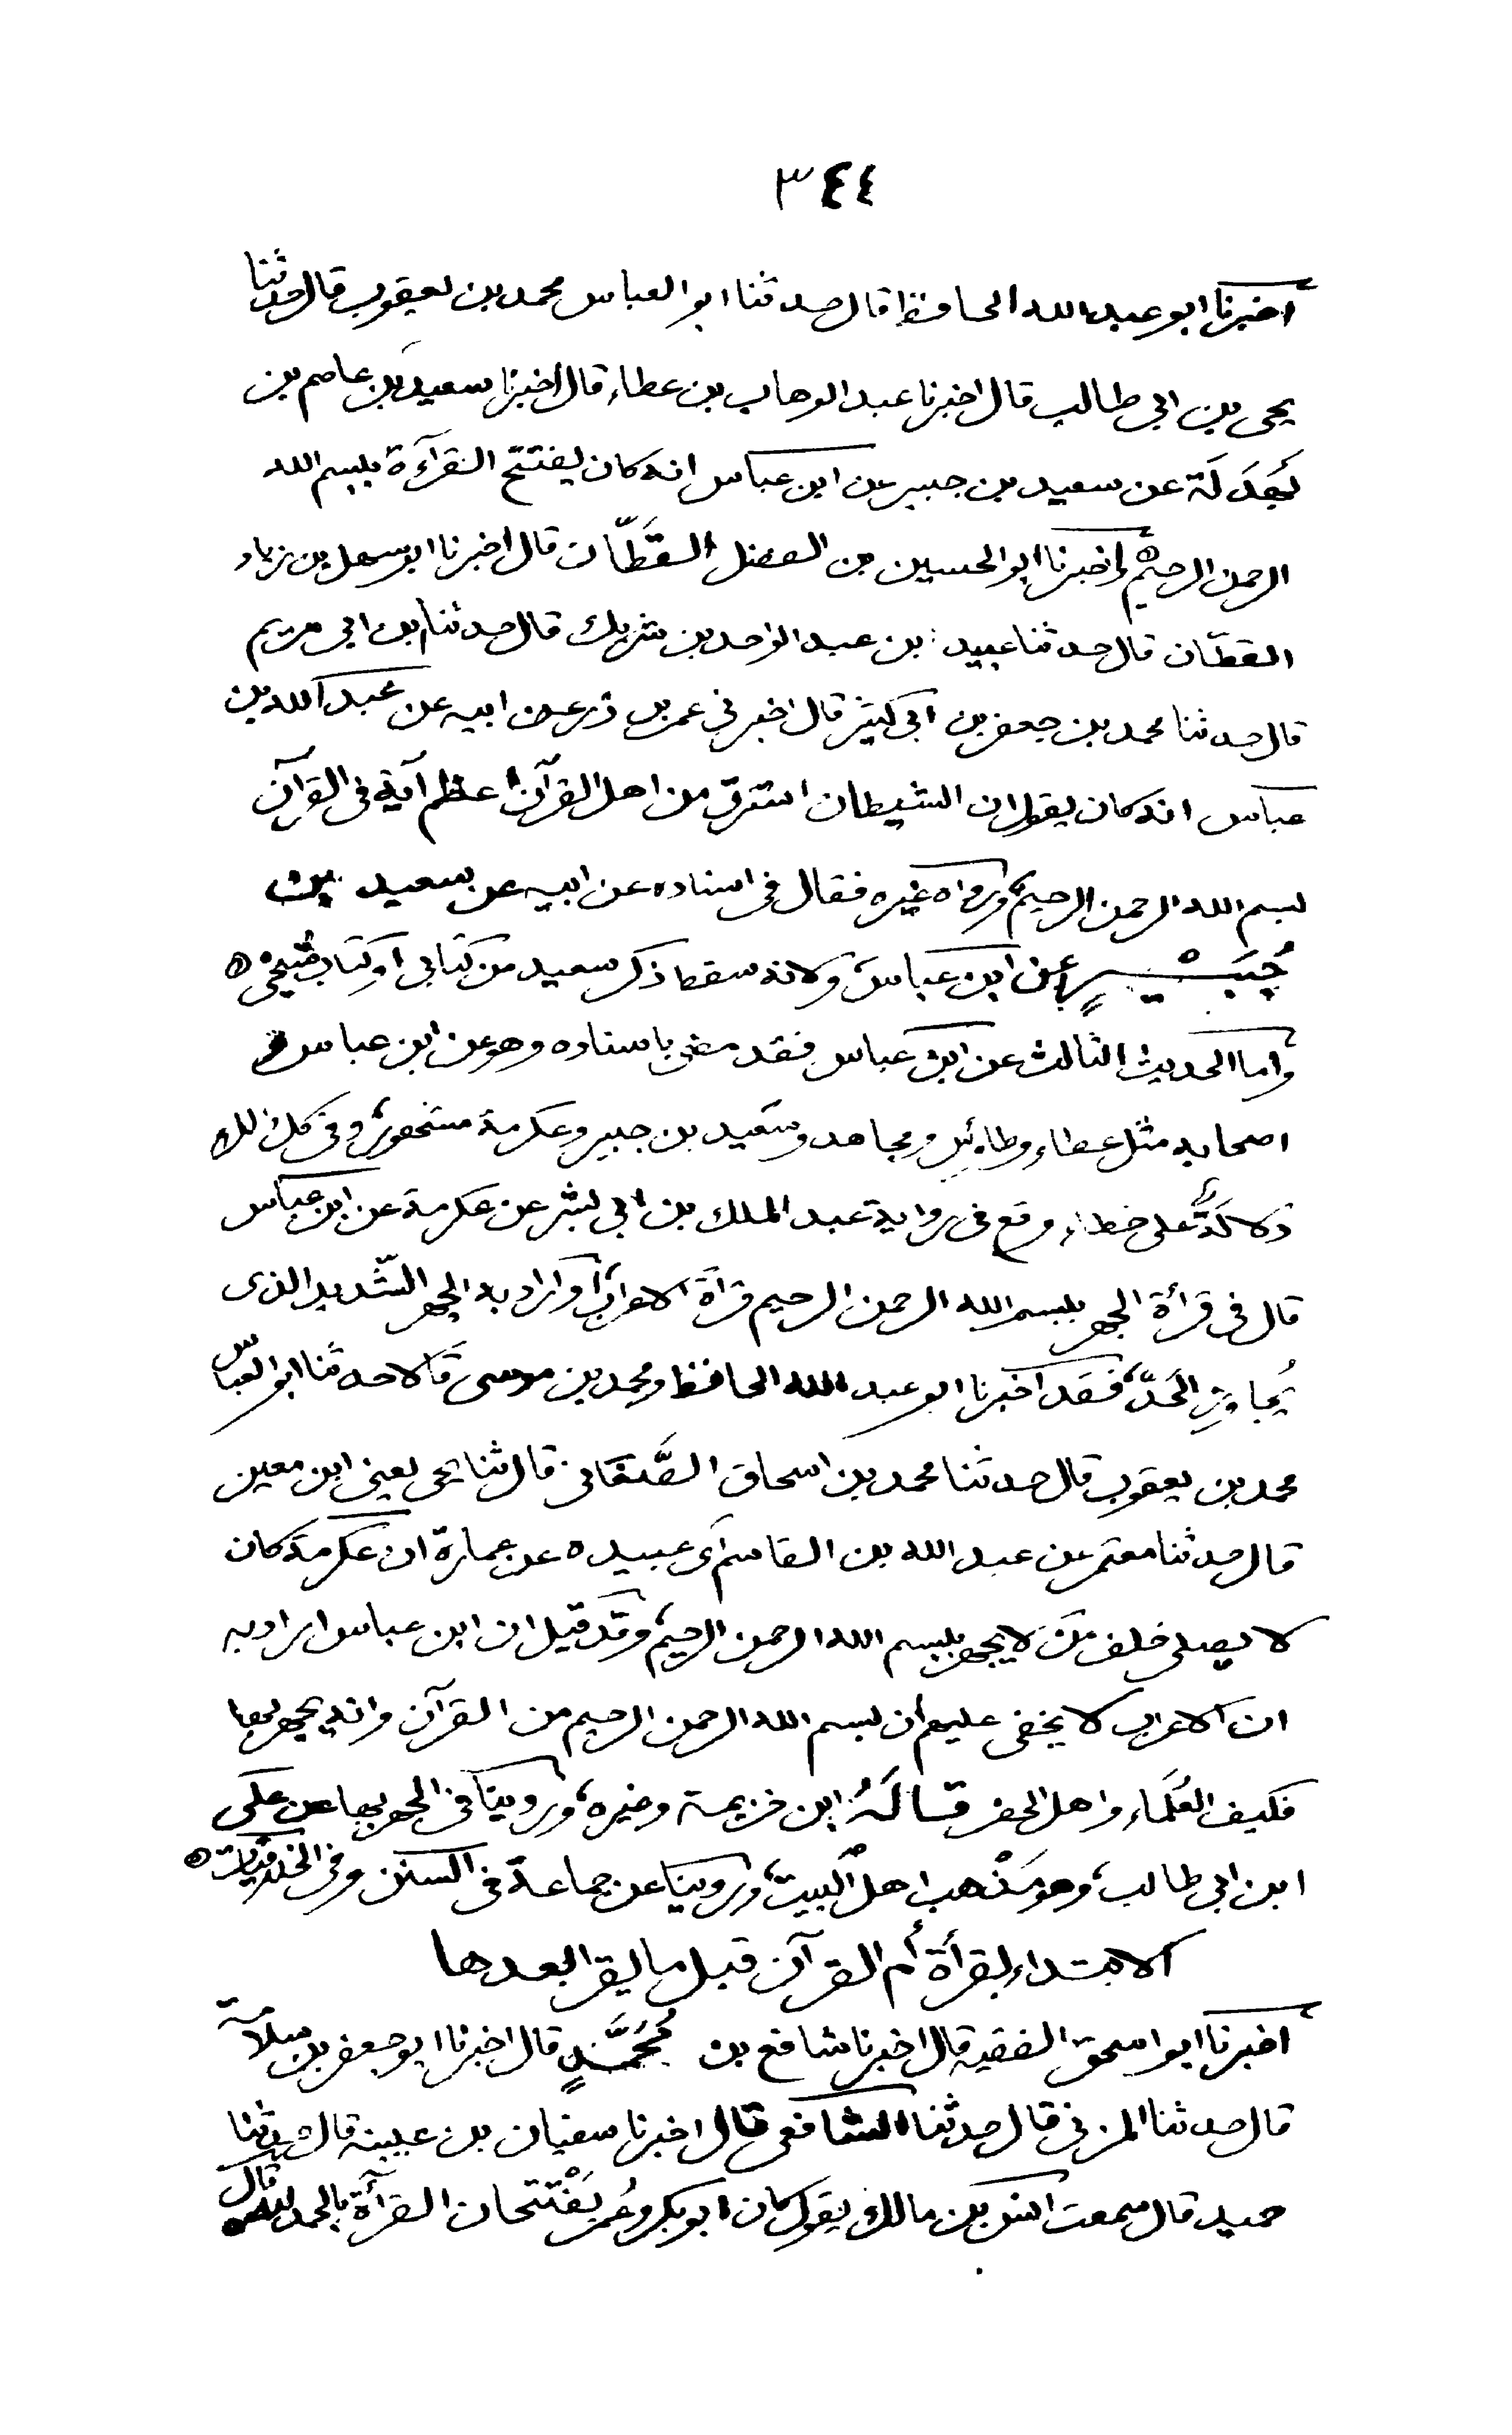 ٣٤٤
اخبرنا ابو عبد الله الحافظ قال حدثنا ابو العباس محمد بن يعقوب قال حدثنا
يحى بن ابى طالب قال اخبرنا عبد الوهاب بن عطاء قال اخبرنا سعيد عن عاصم بن
بَهدَلَة عن سعيد بن جبير عن ابن عباس انه كان يفتتح القرآءة ببسم الله
الرحمن الرحيم ه اخبرنا ابو الحسين بن الفضل القَطّان قال اخبرنا ابو سهل بن زياد
القطّان قال حدثنا عبيد بن عبد الواحد بن شريك قال حدثنا ابن ابى مريم
قال حدثنا محمد بن جعفر بن ابى كثير قال اخبرنى عمر بن ذر عن ابيه عن عبد الله بن
عباس انه كان يقول ان الشيطان استرق من اهل القرآن اعظم آية فى القرآن
بسم الله الرحمن الرحيم، ورواه غيره فقال فى اسناده عن ابيه عن سعيد بن
جُبَيْرٍ عن ابن عباس، ولانه سقط ذكر سعيد من كتابى او كتاب شيخى ه
واما الحديث الثالث عن ابن عباس فقد مضى باسناده وهو عن ابن عباس و
اصحابه مثل عطاء وطاوس ومجاهد وسعيد بن جبير وعكرمة مشهور، وفى كل ذلك
دلالةٌ على خطاء وقع فى رواية عبد الملك بن ابى بشر عن عكرمة عن ابن عباس
قال فى قرأة الجهر ببسم الله الرحمن الرحيم قرأة الاعراب، او اراد به الجهر الشّديد الذى
يُجاوِز الحَدّ، فقد اخبرنا ابو عبد الله الحافظ ومحمد بن موسى قالا حدثنا ابو العباس
محمد بن يعقوب قال حدثنا محمد بن اسحاق الصَّنعَانى قال ثنا يحى يعنى ابن معين
قال حدثنا معتمر عن عبد الله بن القاسم ابى عبيده عن عمارة ان عكرمة كان
لا يصلى خلف من لا يجهر ببسم الله الرحمن الرحيم، وقد قيل ان ابن عباس اراد به
ان الاعراب لا يخفى عليهم ان بسم الله الرحمن الرحيم من القرآن وانه يجهر بها
فكيف العُلَماء واهل الحضر قالَهُ ابن خزيمة وغيره، وروينا فى الجهر بها عن على
ابن ابى طالب، وهو مَذْهب اهل البيت، وروينا عن جماعة فى السنن وفى الخلافيات ه
الابتداء بقرأة أم القرآن قبل ما يقرا بعدها
اخبرنا ابو اسحق الفقيه قال اخبرنا شافع بن مُحَمَّدٍ قال اخبرنا ابو جعفر بن سلامة
قال حدثنا المزنى قال حدثنا الشافعى قال اخبرنا سفيان بن عيينة قال حدثنا
حميد قال سمعت انس بن مالك يقول كان ابو بكر وعُمر يَفْتتحان القرآة بالحمد لله قال